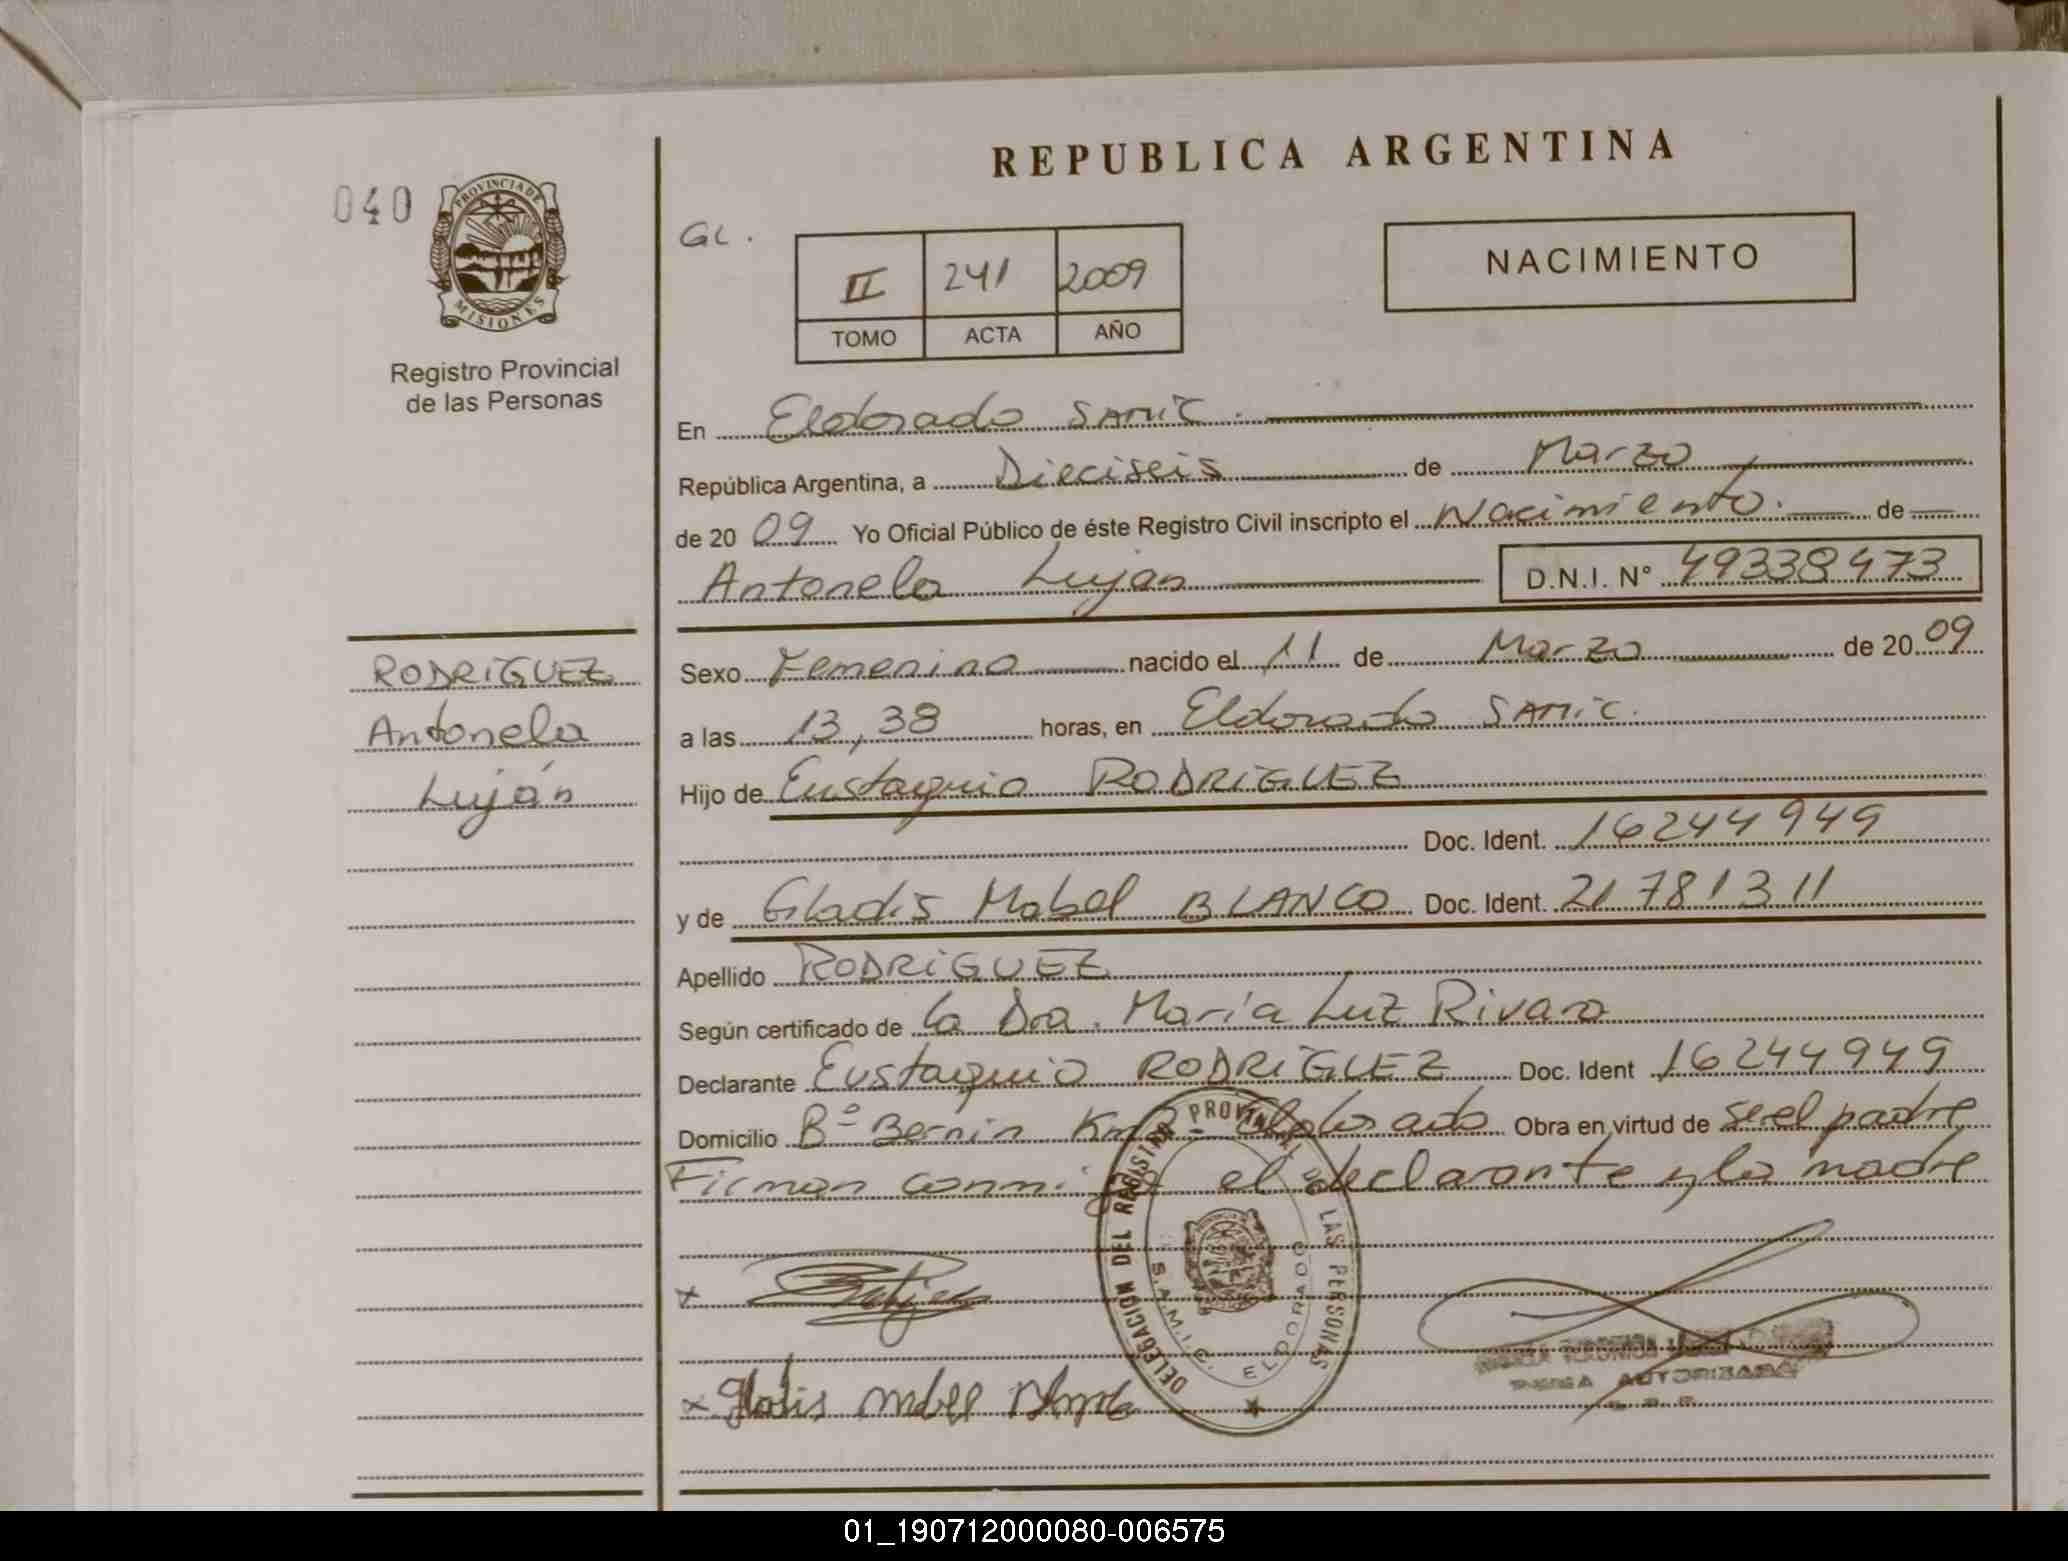 REPUBLICA ARGENTINA
040
PROVINCIA DE
MISIONES
Registro Provincial
de las Personas
GL.
II 241 2009
TOMO ACTA AÑO
NACIMIENTO
En Eldorado SAMIC.
República Argentina, a Dieciseis de Marzo
de 20 09 Yo Oficial Público de éste Registro Civil inscripto el Nacimiento. de
Antonela Luján D.N.I. N° 49338473
RODRIGUEZ
Antonela
Luján
Sexo Femenino nacido el 11 de Marzo de 20 09
a las 13,38 horas, en Eldorado SAMIC.
Hijo de Eustaquio RODRIGUEZ
Doc. Ident. 16244949
y de Gladis Mabel BLANCO Doc. Ident. 21781311
Apellido RODRIGUEZ
Según certificado de la Dra. María Luz Rivara
Declarante Eustaquio RODRIGUEZ Doc. Ident 16244949
Domicilio B° Bernin Eldorado Obra en virtud de ser el padre
Firman conmigo el declarante y la madre
DELEGACION DEL REGISTRO PROVINCIAL DE LAS PERSONAS
S.A.M.I.C. ELDORADO
x
x Gladis Mabel Blanco
FIRMA AUTORIZADA
01_190712000080-006575